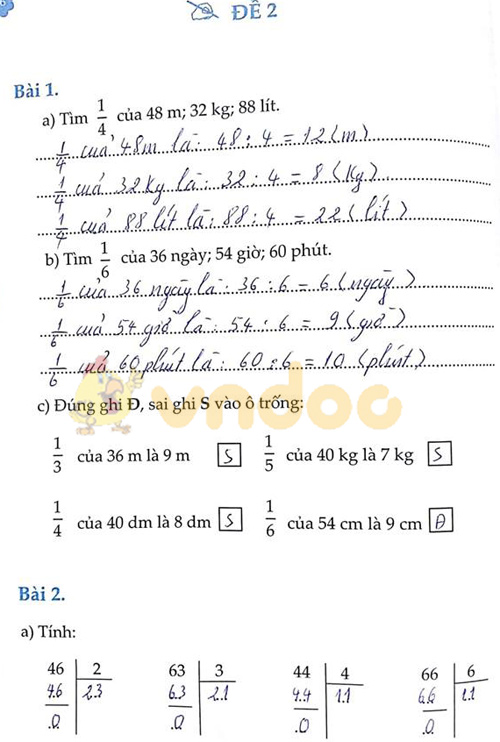 ĐỀ 2
Bài 1.
a) Tìm 1/4 của 48 m; 32 kg; 88 lít.
1/4 của 48m là: 48 : 4 = 12 (m)
1/4 của 32kg là: 32 : 4 = 8 (kg)
1/4 của 88 lít là: 88 : 4 = 22 (lít)
b) Tìm 1/6 của 36 ngày; 54 giờ; 60 phút.
1/6 của 36 ngày là: 36 : 6 = 6 (ngày)
1/6 của 54 giờ là: 54 : 6 = 9 (giờ)
1/6 của 60 phút là: 60 : 6 = 10 (phút)
vndoc
c) Đúng ghi Đ, sai ghi S vào ô trống:
1/3 của 36 m là 9 m S 1/5 của 40 kg là 7 kg S
1/4 của 40 dm là 8 dm S 1/6 của 54 cm là 9 cm Đ
Bài 2.
a) Tính:
46 2 63 3 44 4 66 6
46 23 63 21 44 11 66 11
0 0 0 0